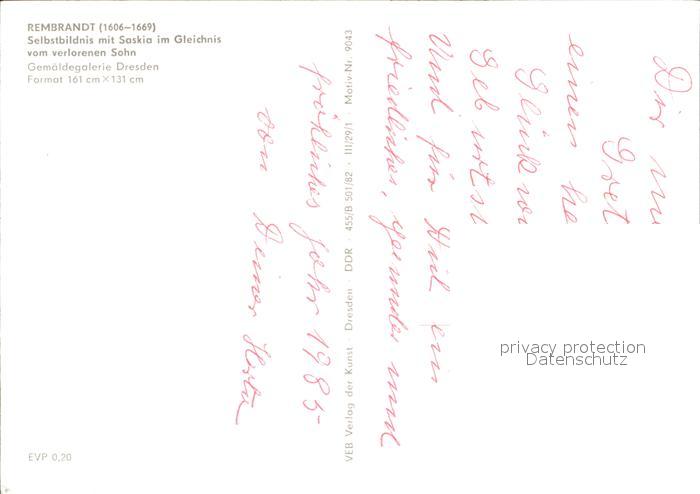 REMBRANDT (1606–1669)
Selbstbildnis mit Saskia im Gleichnis
vom verlorenen Sohn
Gemäldegalerie Dresden
Format 161 cm × 131 cm
VEB Verlag der Kunst · Dresden · DDR · 455/B 501/82 · III/29/1 · Motiv-Nr. 9043
EVP 0,20
Dir
Gret
einen he
Glückw
Geburtst
Und für Dich ein
friedliches, gesundes und
fröhliches Jahr 1985
von Deiner Herta
privacy protection
Datenschutz